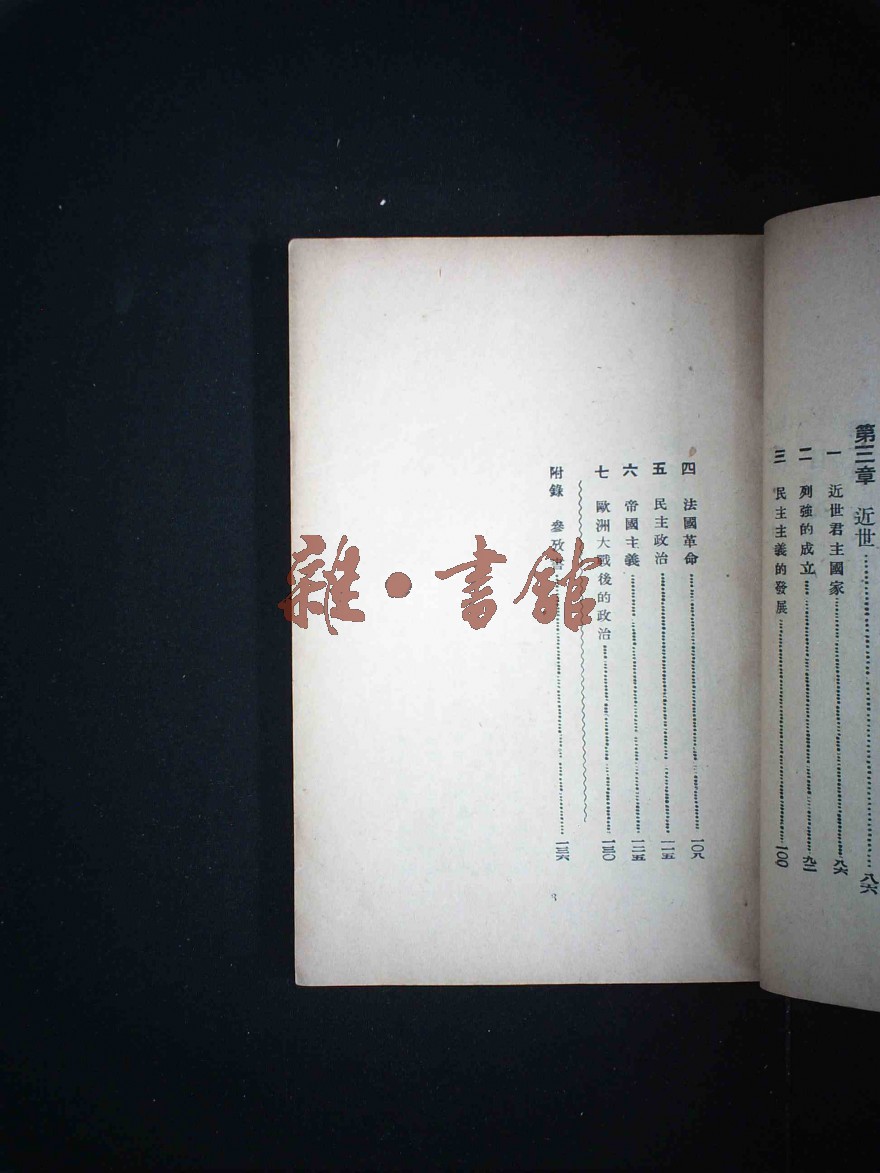 第三章　近世……八六
一　近世君主國家……八六
二　列強的成立……九二
三　民主主義的發展……一〇〇
四　法國革命……一〇八
五　民主政治……一一五
六　帝國主義……一二五
七　歐洲大戰後的政治……一三〇
附錄　參攷書……一三六
3
雜·書館